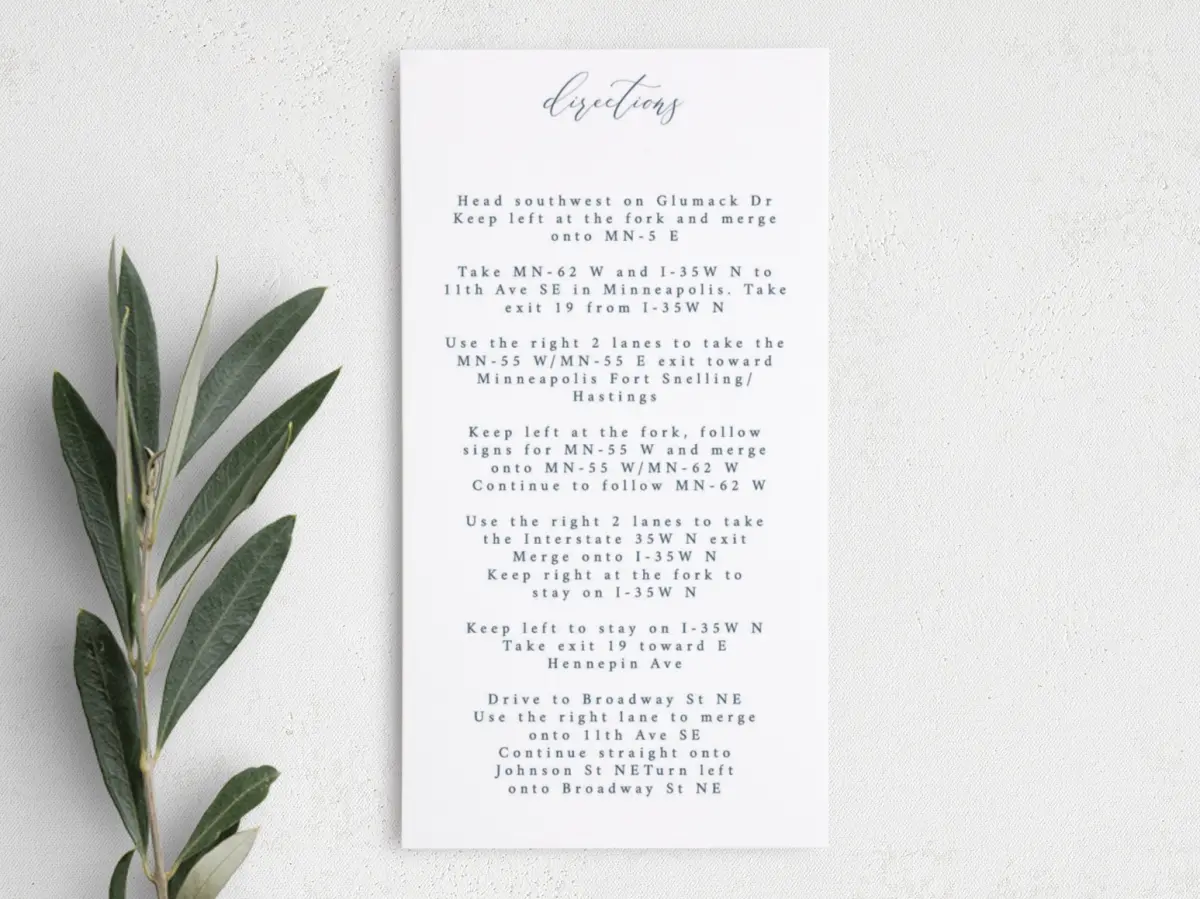 directions
Head southwest on Glumack Dr
Keep left at the fork and merge
onto MN-5 E
Take MN-62 W and I-35W N to
11th Ave SE in Minneapolis. Take
exit 19 from I-35W N
Use the right 2 lanes to take the
MN-55 W/MN-55 E exit toward
Minneapolis Fort Snelling/
Hastings
Keep left at the fork, follow
signs for MN-55 W and merge
onto MN-55 W/MN-62 W
Continue to follow MN-62 W
Use the right 2 lanes to take
the Interstate 35W N exit
Merge onto I-35W N
Keep right at the fork to
stay on I-35W N
Keep left to stay on I-35W N
Take exit 19 toward E
Hennepin Ave
Drive to Broadway St NE
Use the right lane to merge
onto 11th Ave SE
Continue straight onto
Johnson St NETurn left
onto Broadway St NE